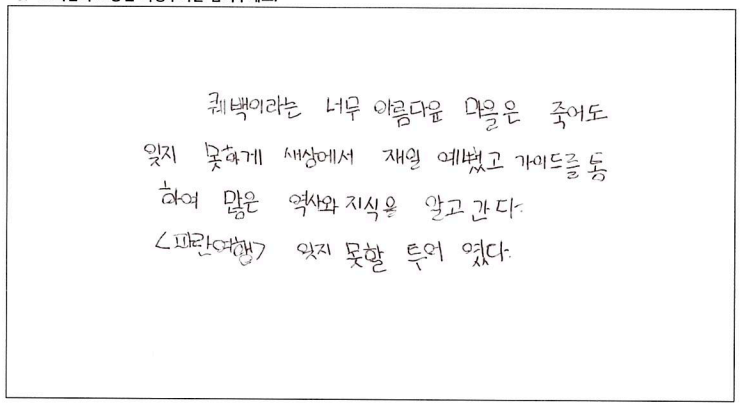 퀘백이라는 너무 아름다운 마을은 죽어도
잊지 못하게 새상에서 재일 예뻤고 가이드를 통
하여 많은 역사와 지식을 알고 간다.
<파란여행> 잊지 못할 투어 였다.